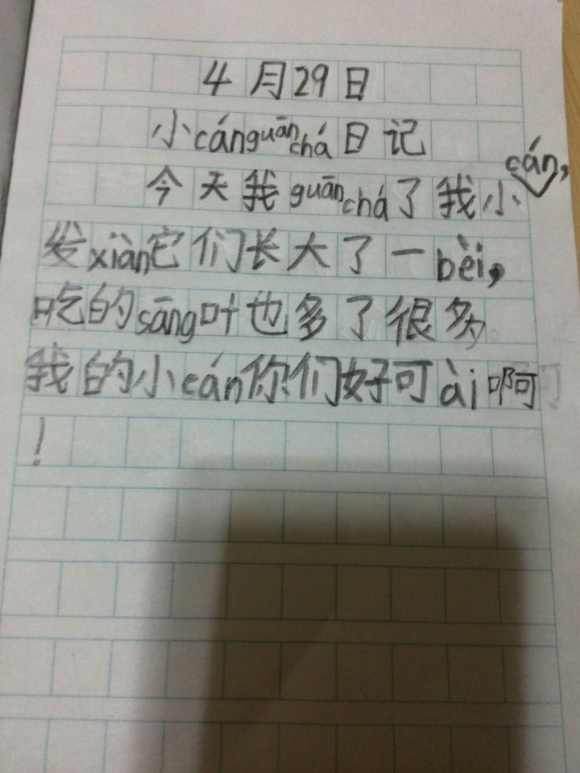 4月29日
小cánguānchá日记
今天我guānchá了我小cán,
发xiàn它们长大了一bèi,
吃的sāng叶也多了很多。
我的小cán你们好可ài啊
!